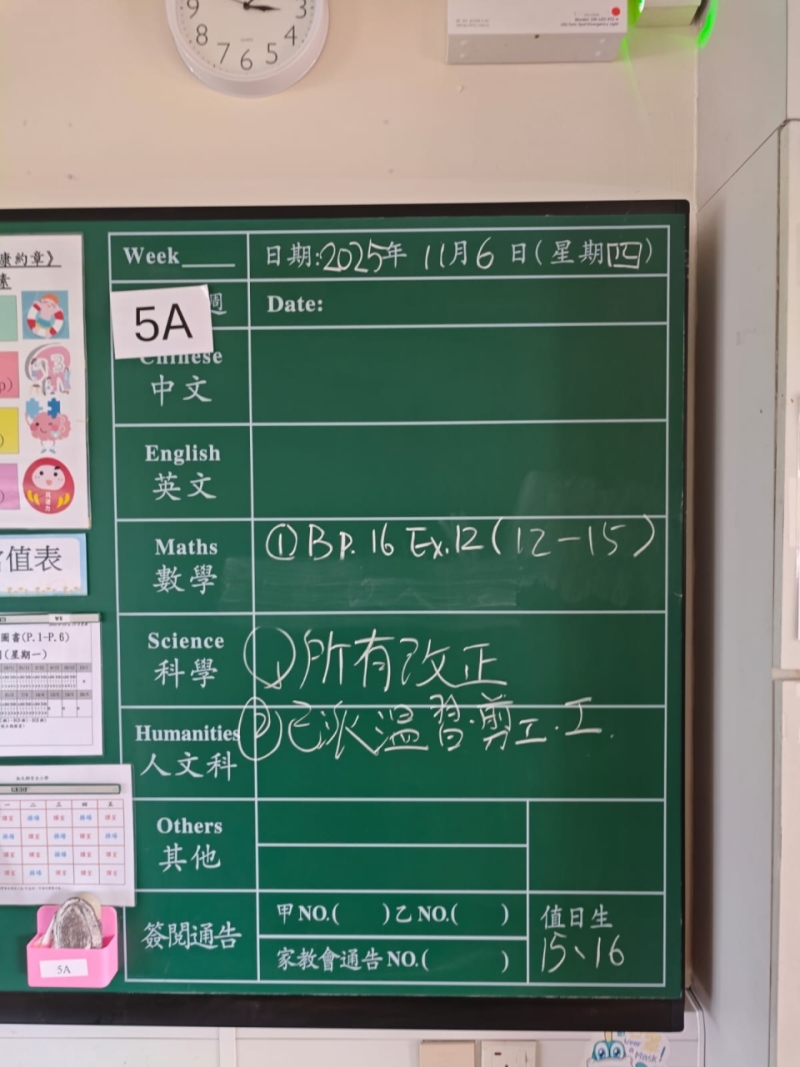 9
8
7
6
5
4
3
Week
日期:2025年 11月6日(星期四)
5A
週
Date:
Chinese
中文
English
英文
Maths
數學
①B P. 16 Ex.12(12-15)
Science
科學
①所有改正
②已派溫習.剪工.工.
Humanities
人文科
Others
其他
簽閱通告
甲NO.( )乙NO.( )
家教會通告NO.( )
值日生
15、16
康約章》
素
值表
圖書(P.1-P.6)
(星期一)
一 二 三 四 五
5A